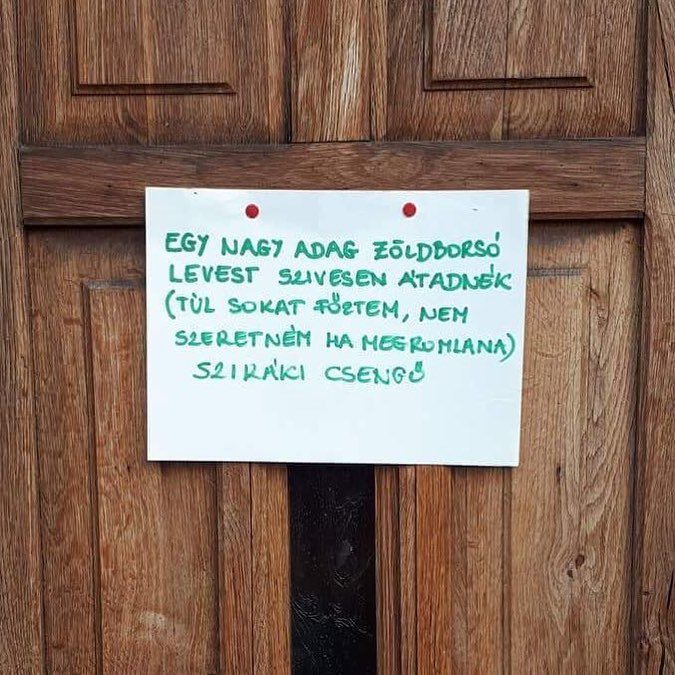 EGY NAGY ADAG ZÖLDBORSÓ
LEVEST SZIVESEN ÁTADNÉK
(TÚL SOKAT FŐZTEM, NEM
SZERETNÉM HA MEGROMLANA)
SZIRÁKI CSENGŐ